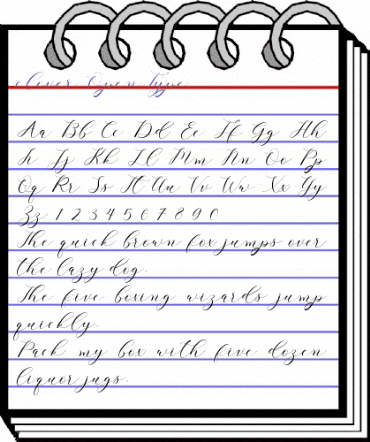 clover Open Type
Aa Bb Cc Dd Ee Ff Gg Hh
Ii Jj Kk Ll Mm Nn Oo Pp
Qq Rr Ss Tt Uu Vv Ww Xx Yy
Zz 1 2 3 4 5 6 7 8 9 0
The quick brown fox jumps over
the lazy dog.
The five boxing wizards jump
quickly.
Pack my box with five dozen
liquor jugs.